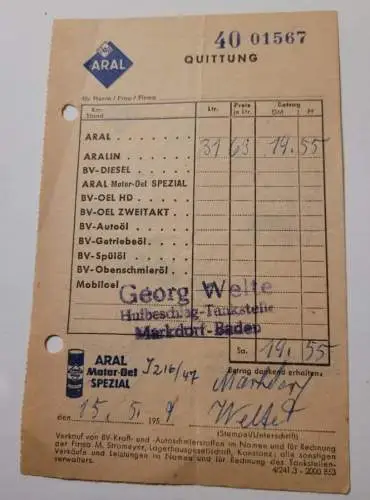 ARAL
40 01567
QUITTUNG
für Herrn / Frau / Firma
Km Stand Ltr. Preis je Ltr. Betrag DM Pf
ARAL . . . . . . . 31 63 19. 55
ARALIN . . . . . .
BV-DIESEL . . . . .
ARAL Motor-Oel SPEZIAL
BV-OEL HD . . . . .
BV-OEL ZWEITAKT . .
BV-Autoöl . . . . .
BV-Getriebeöl . . . .
BV-Spülöl . . . . .
BV-Obenschmieröl . .
Mobiloel
Georg Welte
Hufbeschlag-Tankstelle
Markdorf-Baden
Sa. 19. 55
ARAL
Motor-Oel
SPEZIAL
Betrag dankend erhalten:
Markdorf
den 15. 5. 195 Welte
(Stempel/Unterschrift)
Verkauf von BV-Kraft- und -Autoschmierstoffen im Namen und für Rechnung
der Firma M. Stromeyer, Lagerhausgesellschaft, Konstanz; alle sonstigen
Verkäufe und Leistungen im Namen und für Rechnung des Tankstellen-
verwalters.
4/241.3 - 2000 853